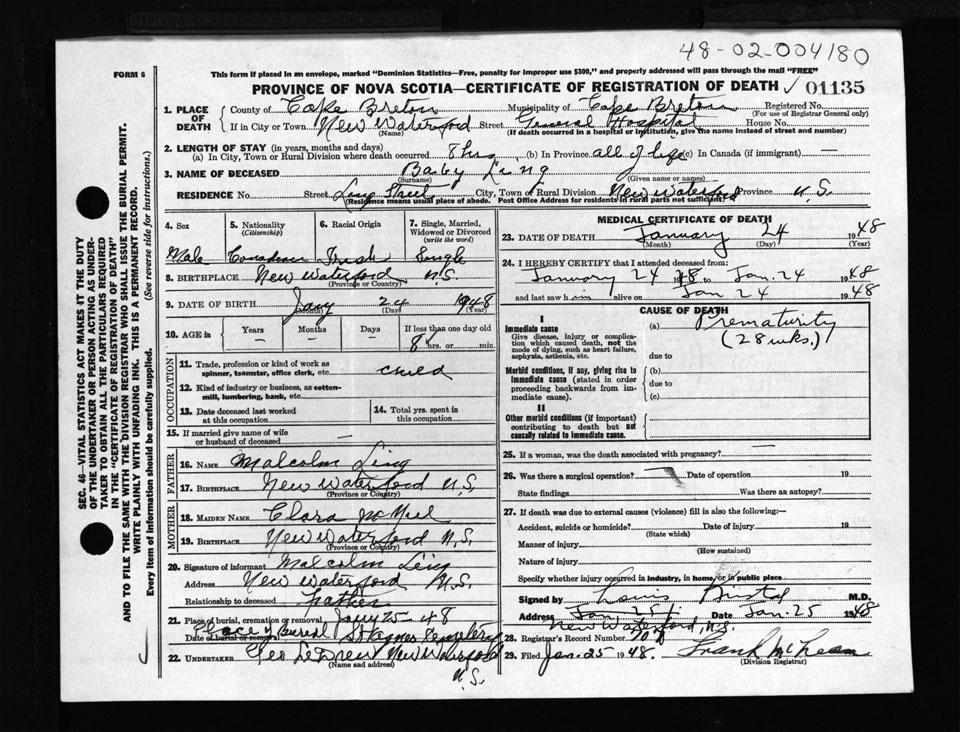 48-02-004180
FORM 6
This form if placed in an envelope, marked "Dominion Statistics—Free, penalty for improper use $300," and properly addressed will pass through the mail "FREE"
PROVINCE OF NOVA SCOTIA—CERTIFICATE OF REGISTRATION OF DEATH 01135
1. PLACE OF DEATH
County of Cape Breton Municipality of Cape Breton Registered No.
(For use of Registrar General only)
If in City or Town New Waterford Street General Hospital House No.
(Name) (If death occurred in a hospital or institution, give the name instead of street and number)
2. LENGTH OF STAY (in years, months and days)
(a) In City, Town or Rural Division where death occurred 8 hrs (b) In Province all of life (c) In Canada (if immigrant) —
3. NAME OF DECEASED Baby Ling
(Surname) (Given name or names)
RESIDENCE No. Street Ling Street City, Town or Rural Division New Waterford Province N.S.
(Residence means usual place of abode. Post Office Address for residents in rural parts not sufficient)
4. Sex 5. Nationality (Citizenship) 6. Racial Origin 7. Single, Married, Widowed or Divorced (write the word)
Male Canadian Irish Single
8. BIRTHPLACE New Waterford N.S.
(Province or Country)
9. DATE OF BIRTH Jany 24 1948
(Month) (Day) (Year)
10. AGE in Years Months Days If less than one day old
— — — 8 hrs. or min.
OCCUPATION
11. Trade, profession or kind of work as spinner, teamster, office clerk, etc. child
12. Kind of industry or business, as cotton-mill, lumbering, bank, etc.
13. Date deceased last worked at this occupation
14. Total yrs. spent in this occupation
15. If married give name of wife or husband of deceased —
FATHER
16. NAME Malcolm Ling
17. BIRTHPLACE New Waterford N.S.
(Province or Country)
MOTHER
18. MAIDEN NAME Clara McNeil
19. BIRTHPLACE New Waterford N.S.
(Province or Country)
20. Signature of informant Malcolm Ling
Address New Waterford N.S.
Relationship to deceased father
21. Place of burial, cremation or removal Jany 25-48
Date of burial or removal Place of Burial St Agnes Cemetery
22. UNDERTAKER Geo LeDrew New Waterford
(Name and address)
N.S.
MEDICAL CERTIFICATE OF DEATH
23. DATE OF DEATH January 24 1948
(Month) (Day) (Year)
24. I HEREBY CERTIFY that I attended deceased from:
January 24 1948 to Jan. 24 1948
and last saw him alive on Jan 24 1948
CAUSE OF DEATH
I
Immediate cause
Give disease, injury or complication which caused death, not the mode of dying, such as heart failure, asphyxia, asthenia, etc.
(a) Prematurity
(28 wks.)
due to
Morbid conditions, if any, giving rise to immediate cause (stated in order proceeding backwards from immediate cause).
(b)
due to
(c)
II
Other morbid conditions (if important) contributing to death but not causally related to immediate cause.
25. If a woman, was the death associated with pregnancy? —
26. Was there a surgical operation? — Date of operation 19
State findings Was there an autopsy?
27. If death was due to external causes (violence) fill in also the following:—
Accident, suicide or homicide? Date of injury 19
(State which)
Manner of injury
(How sustained)
Nature of injury
Specify whether injury occurred in industry, in home, or in public place
Signed by Louis M.D.
Address Jan 25/ Date Jan. 25 1948
New Waterford, N.S.
28. Registrar's Record Number
29. Filed Jan. 25 1948. Frank McLean
(Division Registrar)
SEC. 46—VITAL STATISTICS ACT MAKES IT THE DUTY
OF THE UNDERTAKER OR PERSON ACTING AS UNDER-
TAKER TO OBTAIN ALL THE PARTICULARS REQUIRED
IN THE "CERTIFICATE OF REGISTRATION OF DEATH"
AND TO FILE THE SAME WITH THE DIVISION REGISTRAR WHO SHALL ISSUE THE BURIAL PERMIT.
WRITE PLAINLY WITH UNFADING INK. THIS IS A PERMANENT RECORD.
Every item of information should be carefully supplied. (See reverse side for instructions.)